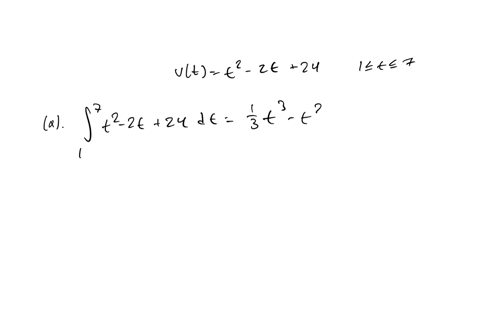 v(t) = t² - 2t + 24 1 ≤ t ≤ 7
(a). ∫₁⁷ t² - 2t + 24 dt = 1/3 t³ - t²